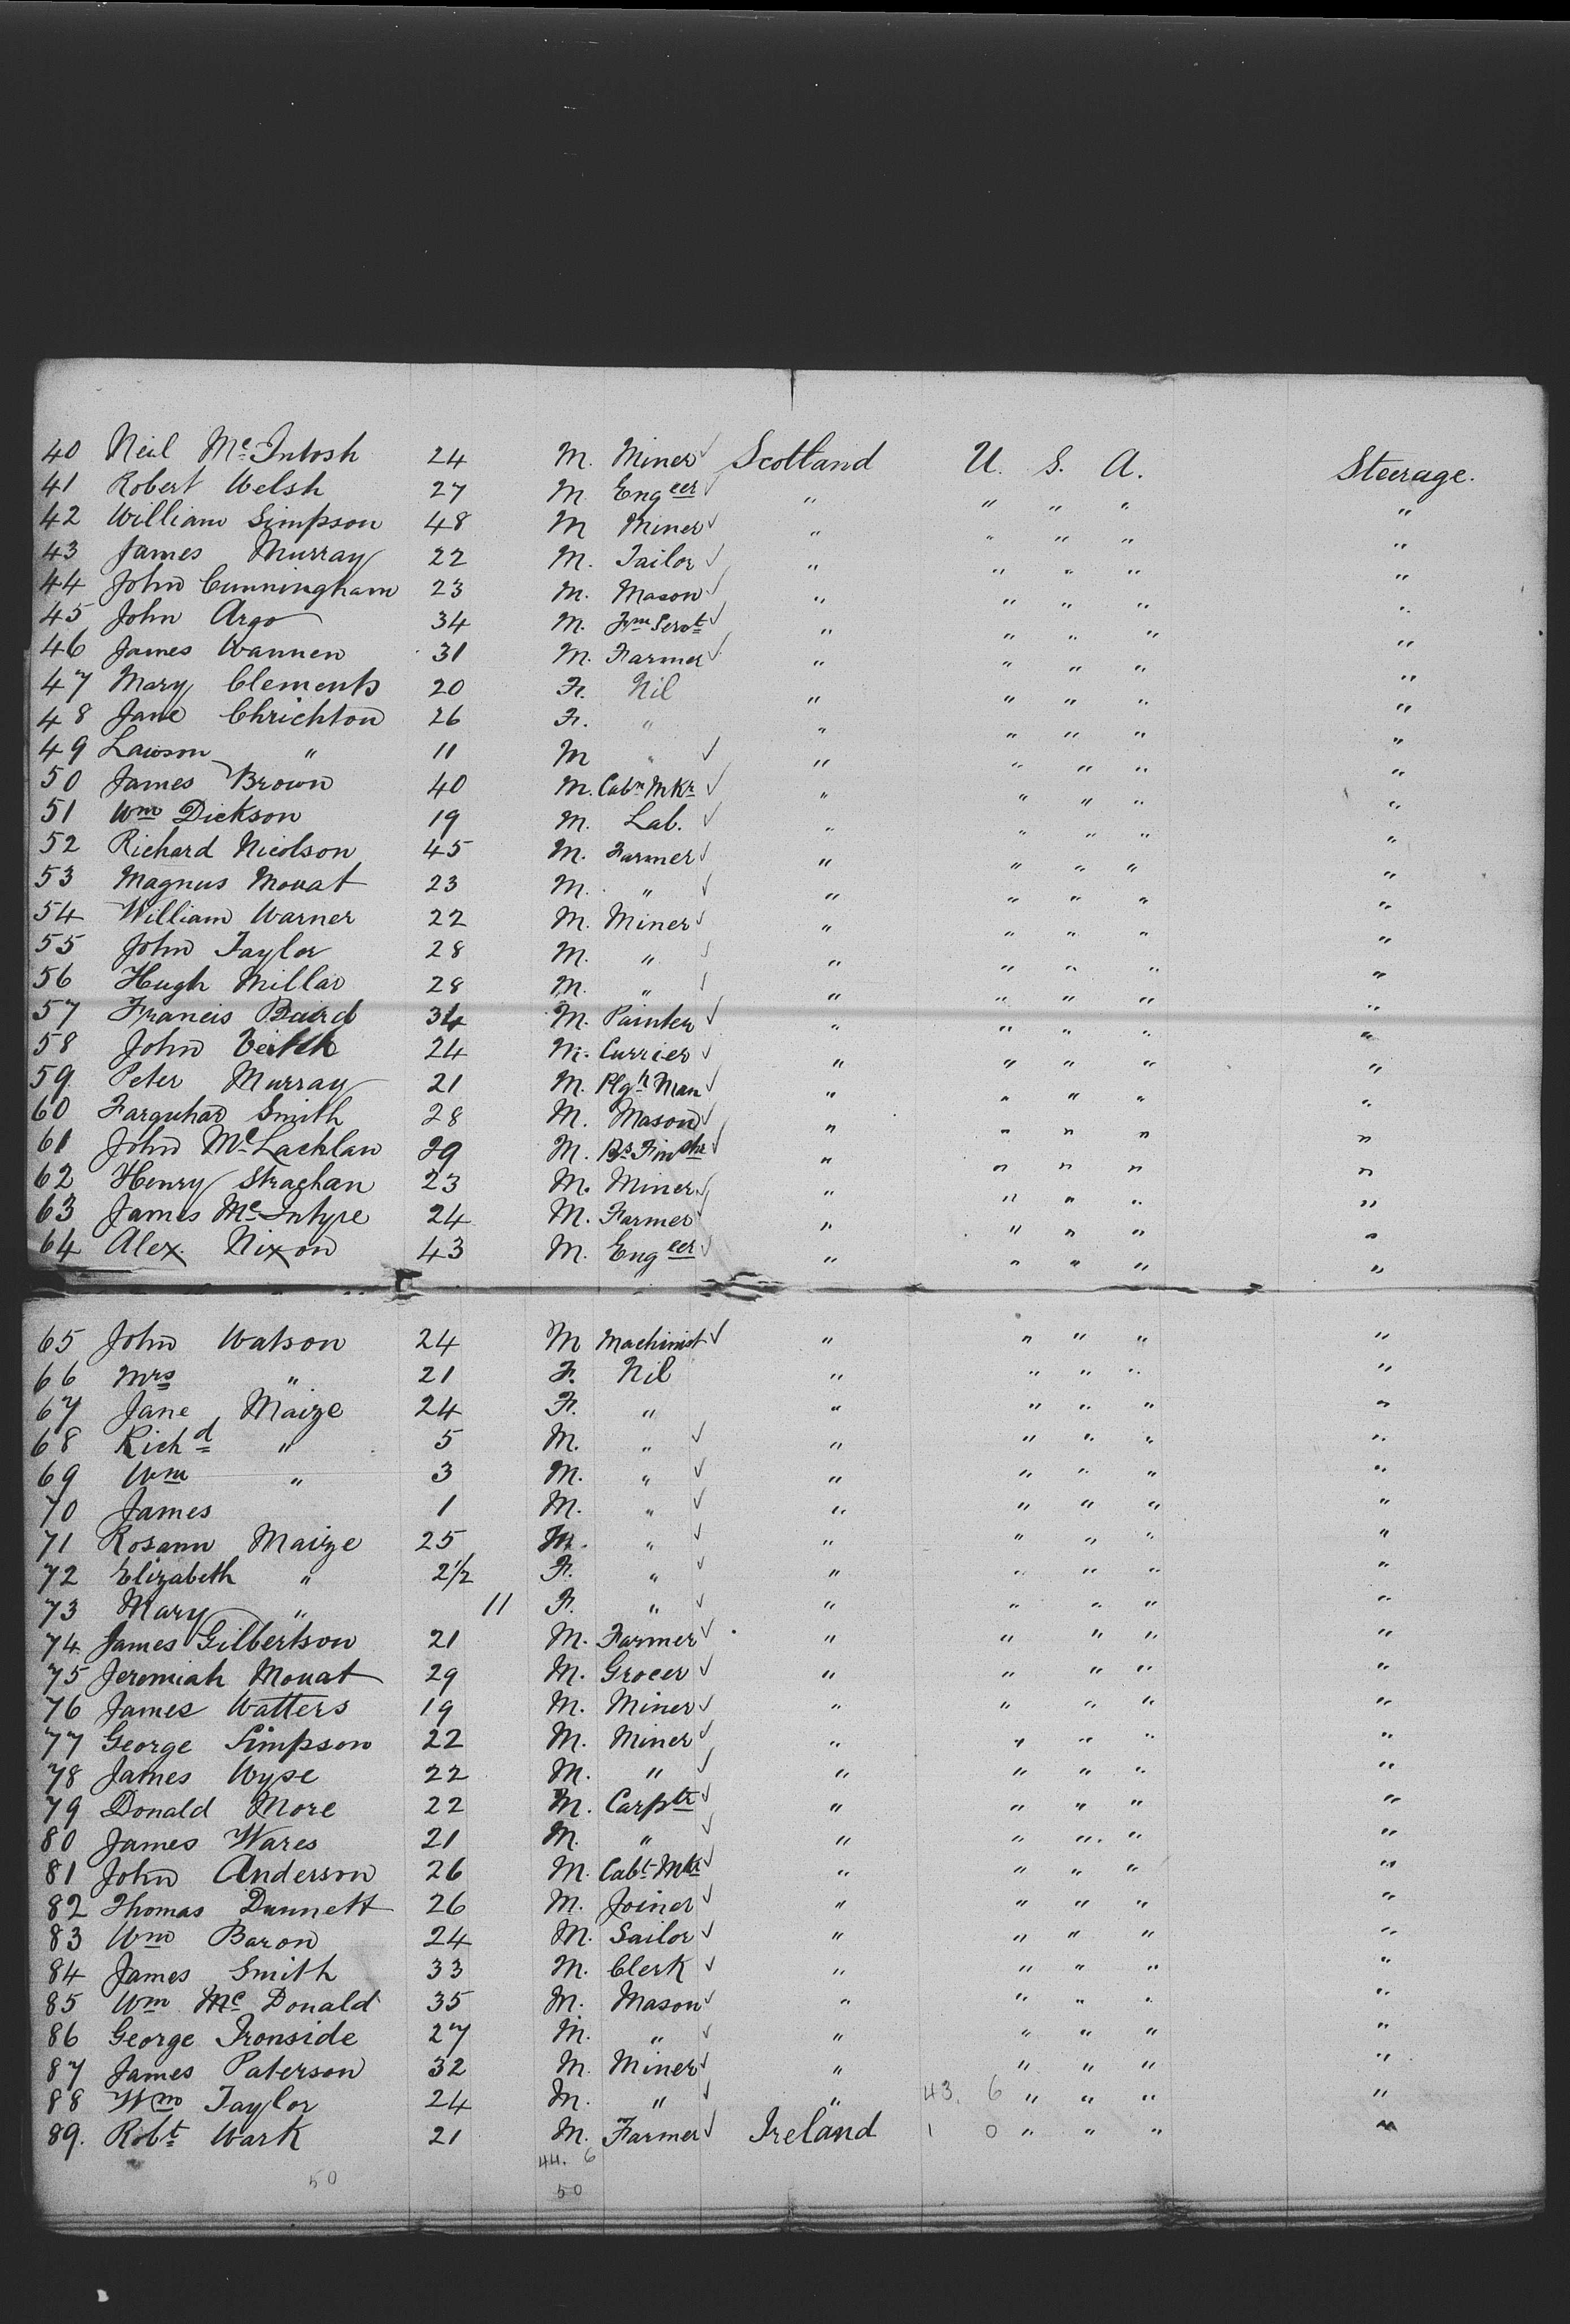 40 Neil Mc Intosh 24 M. Miner ✓ Scotland U. S. A. Steerage.
41 Robert Welsh 27 M Engeer ✓ " " " " "
42 William Simpson 48 M Miner ✓ " " " " "
43 James Murray 22 M. Tailor ✓ " " " " "
44 John Cunningham 23 M. Mason ✓ " " " " "
45 John Argo 34 M. Fm Servt ✓ " " " " "
46 James Wannen 31 M. Farmer ✓ " " " " "
47 Mary Clements 20 F. Nil " " " " "
48 Jane Chrichton 26 F. " " " " " "
49 Lawson " 11 M " ✓ " " " " "
50 James Brown 40 M. Cabn Mkr ✓ " " " " "
51 Wm Dickson 19 M. Lab. ✓ " " " " "
52 Richard Nicolson 45 M. Farmer ✓ " " " " "
53 Magnus Mouat 23 M. " ✓ " " " " "
54 William Warner 22 M. Miner ✓ " " " " "
55 John Taylor 28 M. " ✓ " " " " "
56 Hugh Millar 28 M. " ✓ " " " " "
57 Francis Baird 34 M. Painter ✓ " " " " "
58 John Veitch 24 M. Currier ✓ " " " " "
59 Peter Murray 21 M. Plgh Man ✓ " " " " "
60 Farquhar Smith 28 M. Mason ✓ " " " " "
61 John Mc Lachlan 29 M. Bs Finshr ✓ " " " " "
62 Henry Straghan 23 M. Miner ✓ " " " " "
63 James Mc Intyre 24 M. Farmer ✓ " " " " "
64 Alex. Nixon 43 M. Engeer ✓ " " " " "
65 John Watson 24 M Machinist ✓ " " " " "
66 Mrs " 21 F. Nil " " " " "
67 Jane Maize 24 F. " " " " " "
68 Richd " 5 M. " ✓ " " " " "
69 Wm " 3 M. " ✓ " " " " "
70 James 1 M. " ✓ " " " " "
71 Rosann Maize 25 " ✓ " " " " "
72 Elizabeth " 2½ F. " ✓ " " " " "
73 Mary " 11 F. " ✓ " " " " "
74 James Gilbertson 21 M. Farmer ✓ " " " " "
75 Jeremiah Mouat 29 M. Grocer ✓ " " " " "
76 James Watters 19 M. Miner ✓ " " " " "
77 George Simpson 22 M. Miner ✓ " " " " "
78 James Wyse 22 M. " ✓ " " " " "
79 Donald More 22 M. Carptr ✓ " " " " "
80 James Wares 21 M. " ✓ " " " " "
81 John Anderson 26 M. Cabt Mkr ✓ " " " " "
82 Thomas Dunnett 26 M. Joiner ✓ " " " " "
83 Wm Baron 24 M. Sailor ✓ " " " " "
84 James Smith 33 M. Clerk ✓ " " " " "
85 Wm Mc Donald 35 M. Mason ✓ " " " " "
86 George Ironside 27 M. " ✓ " " " " "
87 James Paterson 32 M. Miner ✓ " " " " "
88 Wm Taylor 24 M. " ✓ " 43. 6 " " " "
89. Robt Wark 21 M. Farmer ✓ Ireland 1 0 " " " "
44. 6
50 50